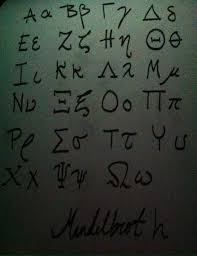 Αα Ββ Γγ Δδ
Εε Ζζ Ηη Θθ
Ιι Κκ Λλ Μμ
Νν Ξξ Οο Ππ
Ρρ Σσ Ττ Υυ
Χχ Ψψ Ωω
Mandelbrot h